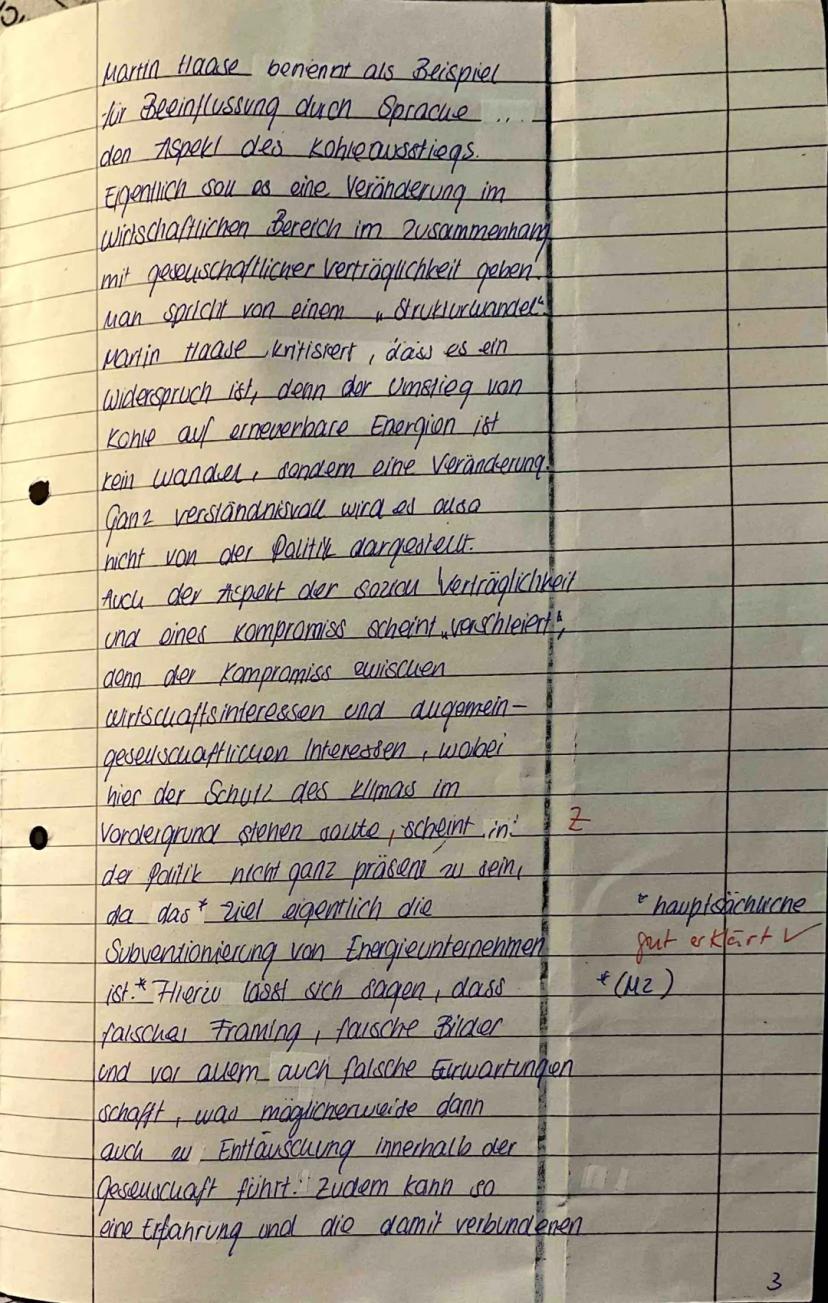 Martin Haase benennt als Beispiel
für Beeinflussung durch Sprache ...
den Aspekt des Kohleausstiegs.
Eigentlich soll es eine Veränderung im
wirtschaftlichen Bereich im Zusammenhang
mit gesellschaftlicher Verträglichkeit geben.
Man spricht von einem „Strukturwandel“.
Martin Haase kritisiert, dass es ein
Widerspruch ist, denn der Umstieg von
Kohle auf erneuerbare Energien ist
kein Wandel, sondern eine Veränderung.
Ganz verständnisvoll wird es also
nicht von der Politik dargestellt.
Auch der Aspekt der sozialen Verträglichkeit
und eines Kompromiss scheint „verschleiert“,
denn der Kompromiss zwischen
Wirtschaftsinteressen und allgemein-
gesellschaftlichen Interessen, wobei
hier der Schutz des Klimas im
Vordergrund stehen sollte, scheint in Z
der Politik nicht ganz präsent zu sein,
da das * Ziel eigentlich die * hauptsächliche
Subventionierung von Energieunternehmen gut erklärt ✓
ist.* Hierzu lässt sich sagen, dass *(M2)
falsches Framing, falsche Bilder
und vor allem auch falsche Erwartungen
schafft, was möglicherweise dann
auch zu Enttäuschung innerhalb der
Gesellschaft führt. Zudem kann so
eine Erfahrung und die damit verbundenen
3